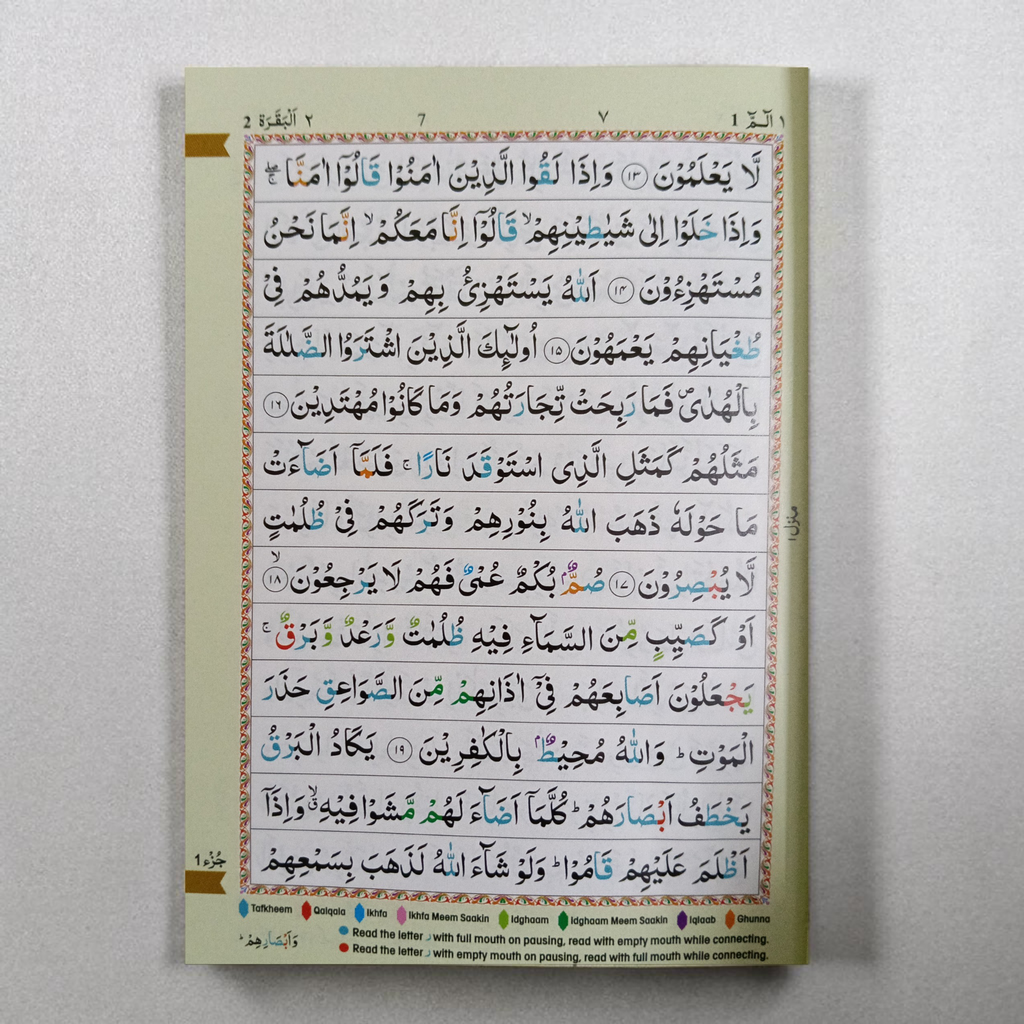 ١ الٓـمّٓ 1 ٧ 7 ٢ اَلْبَقَرَة 2
لَّا يَعْلَمُوْنَ ١٣ وَاِذَا لَقُوا الَّذِيْنَ اٰمَنُوْا قَالُوْٓا اٰمَنَّا ۖۚ
وَاِذَا خَلَوْا اِلٰى شَيٰطِيْنِهِمْ ۙ قَالُوْٓا اِنَّا مَعَكُمْ ۙ اِنَّمَا نَحْنُ
مُسْتَهْزِءُوْنَ ١٤ اَللّٰهُ يَسْتَهْزِئُ بِهِمْ وَيَمُدُّهُمْ فِيْ
طُغْيَانِهِمْ يَعْمَهُوْنَ ١٥ اُولٰٓئِكَ الَّذِيْنَ اشْتَرَوُا الضَّلٰلَةَ
بِالْهُدٰى ۪ فَمَا رَبِحَتْ تِّجَارَتُهُمْ وَمَا كَانُوْا مُهْتَدِيْنَ ١٦
مَثَلُهُمْ كَمَثَلِ الَّذِى اسْتَوْقَدَ نَارًا ۚ فَلَمَّآ اَضَآءَتْ
مَا حَوْلَهٗ ذَهَبَ اللّٰهُ بِنُوْرِهِمْ وَتَرَكَهُمْ فِيْ ظُلُمٰتٍ
لَّا يُبْصِرُوْنَ ١٧ صُمٌّۢ بُكْمٌ عُمْيٌ فَهُمْ لَا يَرْجِعُوْنَ ١٨ ۙ
اَوْ كَصَيِّبٍ مِّنَ السَّمَآءِ فِيْهِ ظُلُمٰتٌ وَّرَعْدٌ وَّبَرْقٌ ۚ
يَجْعَلُوْنَ اَصَابِعَهُمْ فِيْٓ اٰذَانِهِمْ مِّنَ الصَّوَاعِقِ حَذَرَ
الْمَوْتِ ؕ وَاللّٰهُ مُحِيْطٌۢ بِالْكٰفِرِيْنَ ١٩ يَكَادُ الْبَرْقُ
يَخْطَفُ اَبْصَارَهُمْ ؕ كُلَّمَآ اَضَآءَ لَهُمْ مَّشَوْا فِيْهِ ۙۗ وَاِذَآ
اَظْلَمَ عَلَيْهِمْ قَامُوْا ؕ وَلَوْ شَآءَ اللّٰهُ لَذَهَبَ بِسَمْعِهِمْ
منزل ١
جُزْء 1
Tafkheem Qalqala Ikhfa Ikhfa Meem Saakin Idghaam Idghaam Meem Saakin Iqlaab Ghunna
Read the letter ر with full mouth on pausing, read with empty mouth while connecting.
Read the letter ر with empty mouth on pausing, read with full mouth while connecting.
وَاَبْصَارِهِمْ ؕ